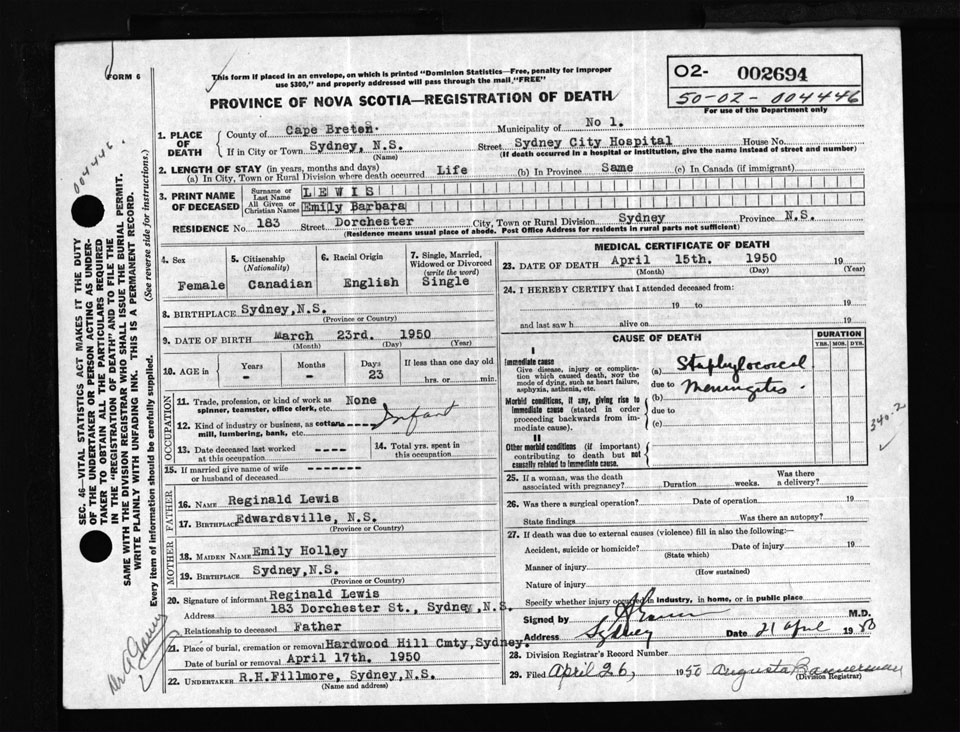 FORM 6
This form if placed in an envelope, on which is printed "Dominion Statistics—Free, penalty for improper
use $300," and properly addressed will pass through the mail "FREE"
02- 002694
50-02-004446
For use of the Department only
PROVINCE OF NOVA SCOTIA—REGISTRATION OF DEATH
1. PLACE OF DEATH
County of Cape Breton. Municipality of No 1.
If in City or Town Sydney, N.S. Street Sydney City Hospital House No.
(Name) (If death occurred in a hospital or institution, give the name instead of street and number)
2. LENGTH OF STAY (in years, months and days)
(a) In City, Town or Rural Division where death occurred Life (b) In Province Same (c) In Canada (if immigrant)
3. PRINT NAME OF DECEASED
Surname or Last Name LEWIS
All Given or Christian Names Emily Barbara
RESIDENCE No. 183 Street Dorchester City, Town or Rural Division Sydney Province N.S.
(Residence means usual place of abode. Post Office Address for residents in rural parts not sufficient)
4. Sex Female
5. Citizenship (Nationality) Canadian
6. Racial Origin English
7. Single, Married, Widowed or Divorced (write the word) Single
8. BIRTHPLACE Sydney, N.S.
(Province or Country)
9. DATE OF BIRTH March 23rd. 1950
(Month) (Day) (Year)
10. AGE Years - Months - Days 23 If less than one day old hrs. or min.
OCCUPATION
11. Trade, profession or kind of work as spinner, teamster, office clerk, etc. None
12. Kind of industry or business, as cotton mill, lumbering, bank, etc. ----- Infant
13. Date deceased last worked at this occupation -----
14. Total yrs. spent in this occupation
15. If married give name of wife or husband of deceased ------
FATHER
16. NAME Reginald Lewis
17. BIRTHPLACE Edwardsville, N.S.
(Province or Country)
MOTHER
18. MAIDEN NAME Emily Holley
19. BIRTHPLACE Sydney, N.S.
(Province or Country)
20. Signature of informant Reginald Lewis
Address 183 Dorchester St., Sydney, N.S.
Relationship to deceased Father
21. Place of burial, cremation or removal Hardwood Hill Cmty, Sydney.
Date of burial or removal April 17th. 1950
22. UNDERTAKER R.H.Fillmore, Sydney, N.S.
(Name and address)
MEDICAL CERTIFICATE OF DEATH
23. DATE OF DEATH April 15th. 1950 19
(Month) (Day) (Year)
24. I HEREBY CERTIFY that I attended deceased from:
19 to 19
and last saw h alive on 19
CAUSE OF DEATH
DURATION
YRS. MOS. DYS.
I
Immediate cause
Give disease, injury or complication which caused death, NOT the mode of dying, such as heart failure, asphyxia, asthenia, etc.
(a) Staphylococcal
due to Meningitis.
Morbid conditions, if any, giving rise to immediate cause (stated in order proceeding backwards from immediate cause).
(b)
due to
(c)
II
Other morbid conditions (if important) contributing to death but not causally related to immediate cause.
340.2
25. If a woman, was the death associated with pregnancy? Duration weeks. Was there a delivery?
26. Was there a surgical operation? Date of operation 19
State findings Was there an autopsy?
27. If death was due to external causes (violence) fill in also the following:—
Accident, suicide or homicide? Date of injury 19
(State which)
Manner of injury
(How sustained)
Nature of injury
Specify whether injury occurred in industry, in home, or in public place
Signed by M.D.
Address Sydney Date 21 April 1950
28. Division Registrar's Record Number
29. Filed April 26, 1950 Augusta Bannerman
(Division Registrar)
004446.
SEC. 46—VITAL STATISTICS ACT MAKES IT THE DUTY
OF THE UNDERTAKER OR PERSON ACTING AS UNDER-
TAKER TO OBTAIN ALL THE PARTICULARS REQUIRED
IN THE "REGISTRATION OF DEATH" AND TO FILE THE
SAME WITH THE DIVISION REGISTRAR WHO SHALL ISSUE THE BURIAL PERMIT.
WRITE PLAINLY WITH UNFADING INK. THIS IS A PERMANENT RECORD.
Every item of information should be carefully supplied. (See reverse side for instructions.)